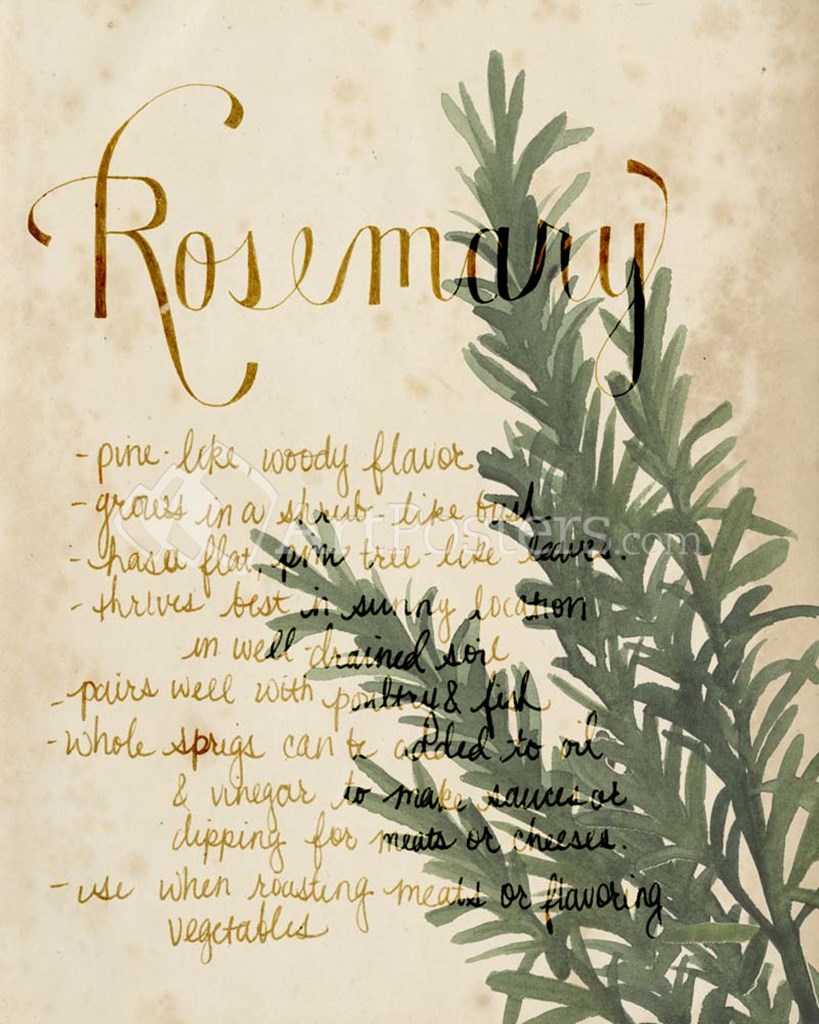 Rosemary
- pine-like, woody flavor
- grows in a shrub-like bush.
ArtPosters.com
- has a flat, pine tree-like leaves.
- thrives best in sunny location
in well-drained soil
- pairs well with poultry & fish
- whole sprigs can be added to oil
& vinegar to make sauces or
dipping for meats or cheeses.
- use when roasting meats or flavoring
vegetables